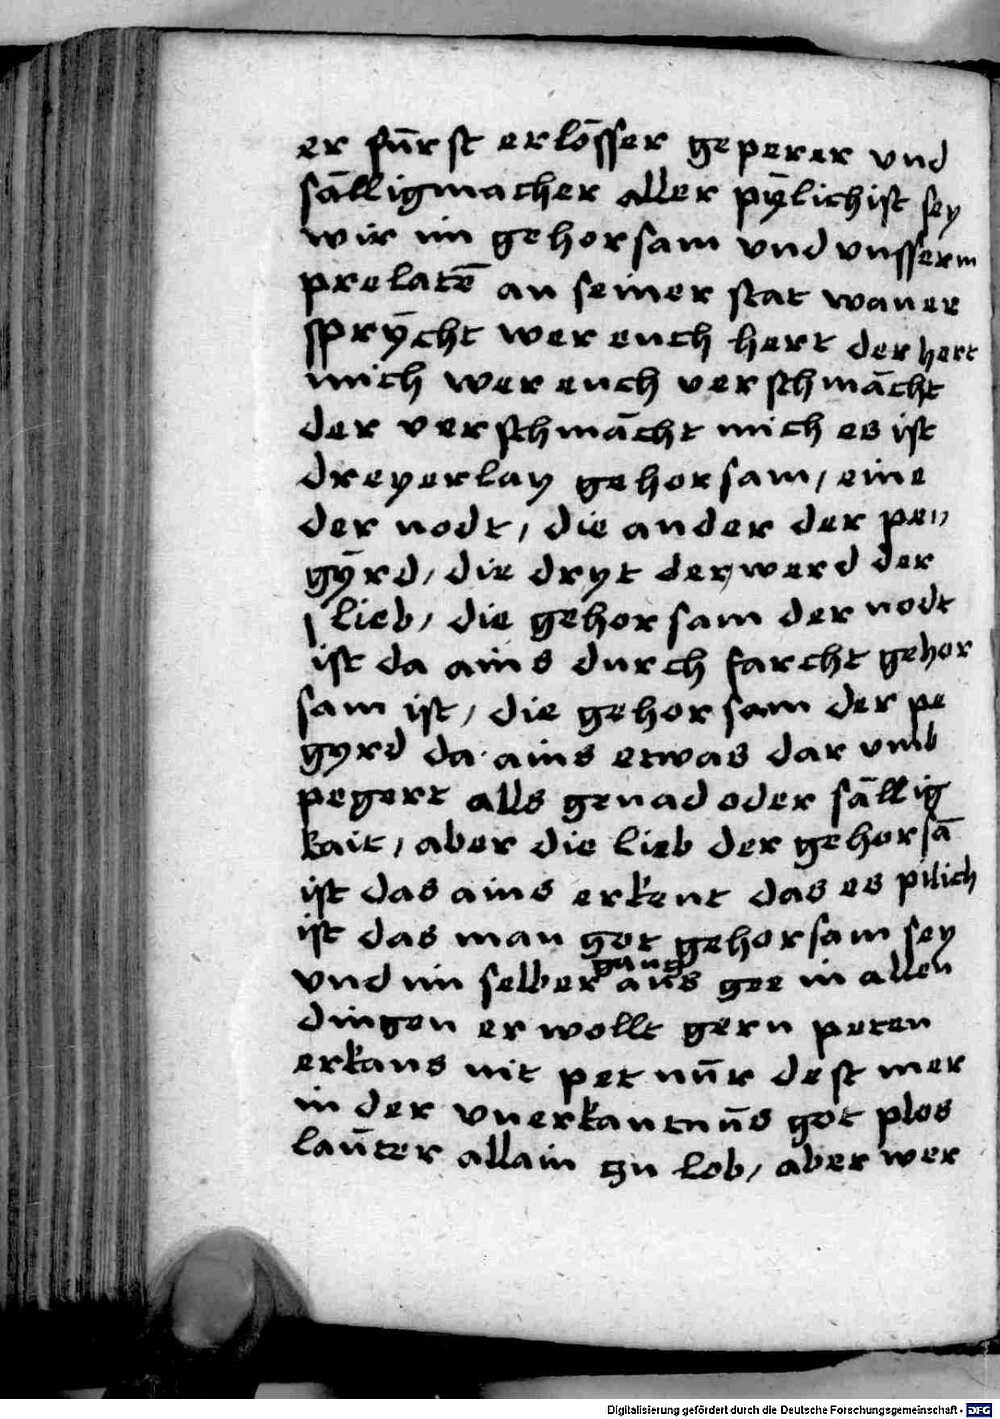 er fūrst erlōsser geperer vnd
sālligmacher aller pȳlich ist sey
wir im gehorsam vnd vnsserm
prelatē an seiner stat waner
sprȳcht wer euch hert der hert
mich wer euch verschmācht
der verschmācht mich es ist
dreyerlay gehorsam / eine
der nodt / die ander der pe„
gȳrd / die dryt der werd der
lieb / die gehorsam der nodt
ist da ains durch farcht gehor
sam ist / die gehorsam der pe
gyrd da ains etwas dar vmb
pegert alls genad oder sāllig
kait / aber die lieb der gehorsā
ist das ains erkent das es pilich
ist das man got gehorsam sey
vnd im selber gancz aūs gee in allen
dingen er wollt gern peten
erkans nit pet nūr dest mer
in der vnerkantnūs got plos
laūter allain zu lob / aber wer
Digitalisierung gefördert durch die Deutsche Forschungsgemeinschaft - DFG